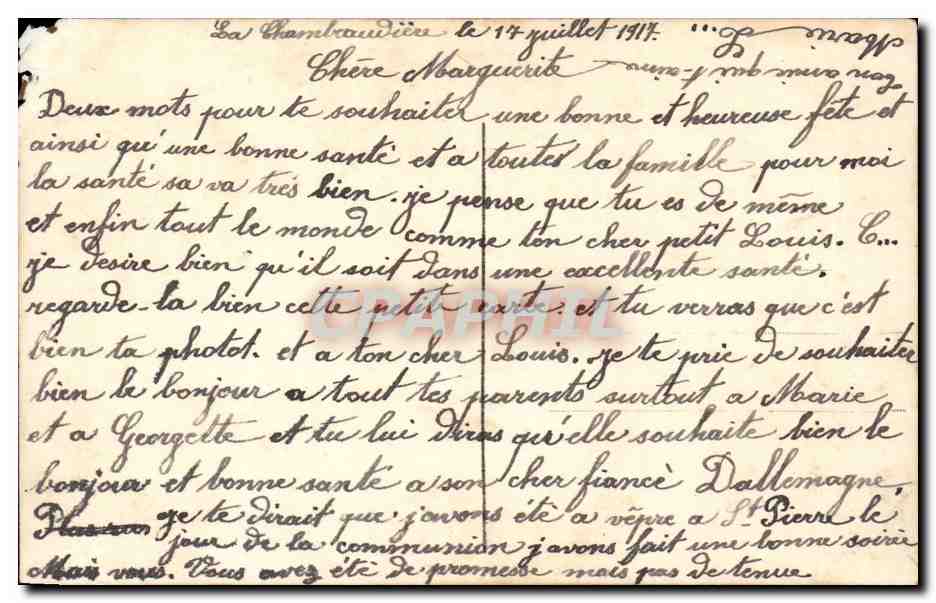 La Chambraudière le 17 juillet 1917.
Chère Marguerite
Deux mots pour te souhaiter une bonne et heureuse fête et
ainsi qu'une bonne santé et a toutes la famille pour moi
la santé sa va très bien. je pense que tu es de même
et enfin tout le monde comme ton cher petit Louis. C...
je desire bien qu'il soit dans une excellente santé.
regarde-la bien cette petite carte. et tu verras que c'est
bien ta photot. et a ton cher Louis. je te prie de souhaiter
bien le bonjour a tout tes parents surtout a Marie
et a Georgette et tu lui diras qu'elle souhaite bien le
bonjour et bonne santé a son cher fiancè Dallemagne
je te dirait que j'avons été a vêpre a St Pierre le
jour de la communion j'avons fait une bonne soirée
Mais vous. Vous avez été de promesse mais pas de tenue
ton amie qui t'aime
L...
CPAPHIL